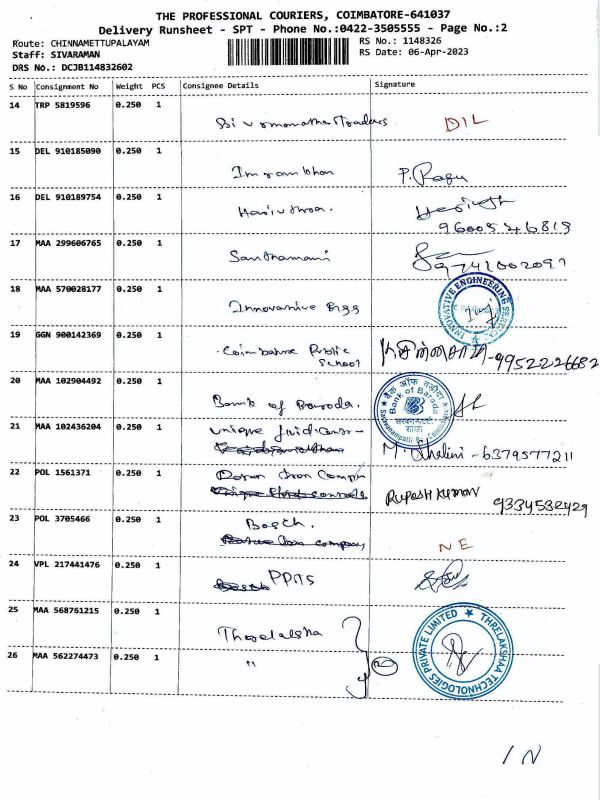 THE PROFESSIONAL COURIERS, COIMBATORE-641037
Delivery Runsheet - SPT - Phone No.:0422-3505555 - Page No.:2
Route: CHINNAMETTUPALAYAM RS No.: 1148326
Staff: SIVARAMAN RS Date: 06-Apr-2023
DRS No.: DCJB114832602
S No Consignment No Weight PCS Consignee Details Signature
14 TRP 5819596 0.250 1
DIL
15 DEL 910185090 0.250 1
Imrankhan P. Ragu
16 DEL 910189754 0.250 1
17 MAA 299606765 0.250 1
Santhamani 9741002097
18 MAA 570028177 0.250 1
Innovative Engg INNOVATIVE ENGINEERING
19 GGN 900142369 0.250 1
Coimbatore Public School 9952226682
20 MAA 102904492 0.250 1
Bank of Baroda. बैंक ऑफ बड़ौदा Bank of Baroda
21 MAA 102436204 0.250 1
unique M. Shalini - 6379577211
22 POL 1561371 0.250 1
Rupesh Kumar 9334582429
23 POL 3705466 0.250 1
Bosch. NE
24 VPL 217441476 0.250 1
25 MAA 568761215 0.250 1
THRELAKSHAA TECHNOLOGIES PRIVATE LIMITED
26 MAA 562274473 0.250 1
"